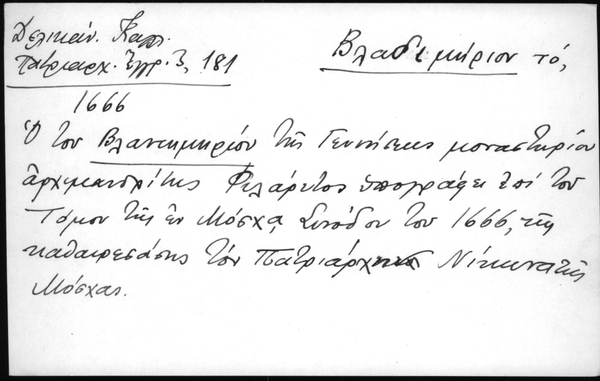 Δελικάν. Καλλ.
Πατριαρχ. Ἐγγρ. 3, 181
Βλαδιμήριον τό,
1666
Ὁ τοῦ Βλαντιμηρίου τῆς Γεννήσεως μοναστηρίου
ἀρχιμανδρίτης Φιλάρετος ὑπογράφει ἐπί τοῦ
Τόμου τῆς ἐν Μόσχᾳ Συνόδου τοῦ 1666, τῆς
καθαιρεσάσης τόν Πατριάρχην Νίκωνα τῆς
Μόσχας.